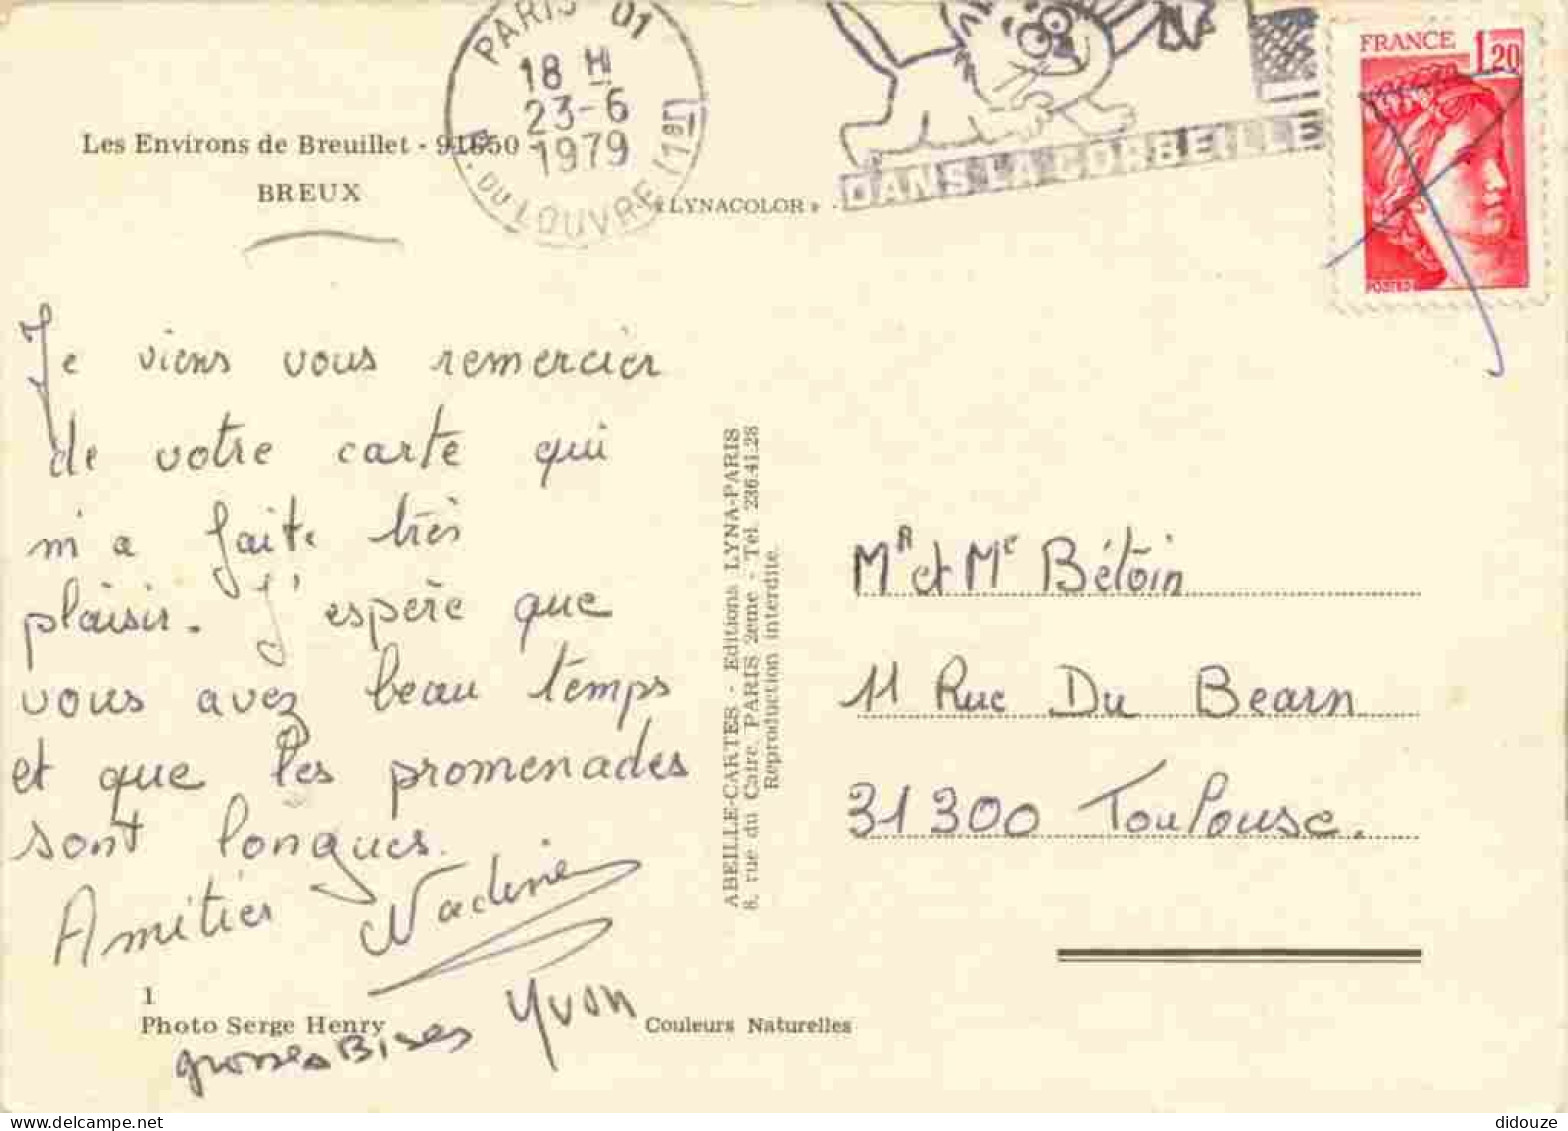 PARIS 01
18 H
23-6
1979
R. DU LOUVRE (1er)
DANS LA CORBEILLE
FRANCE 1,20
POSTES
Les Environs de Breuillet - 91650 -
BREUX
« LYNACOLOR » -
Je viens vous remercier
de votre carte qui
m'a faite très
plaisir. J'espère que
vous avez beau temps
et que les promenades
sont longues.
Amitiés Nadine
Yvon
grosses Bises
1
Photo Serge Henry
Couleurs Naturelles
ABEILLE-CARTES - Editions LYNA-PARIS
8, rue du Caire, PARIS 2eme - Tél. 236.41.28
Reproduction interdite.
Mr et Me Bétoin
11 Rue Du Bearn
31300 Toulouse.
didouze